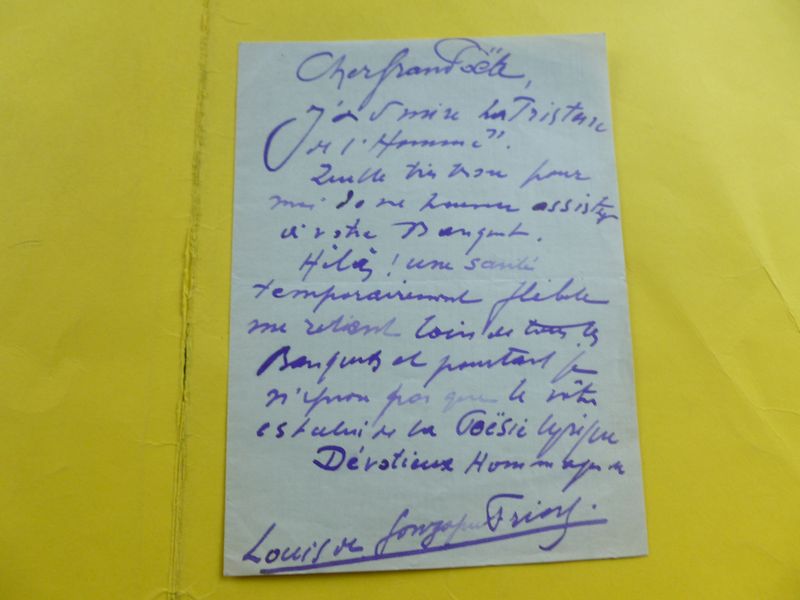 Cher Grand Poëte,
J'admire "La Tristesse
de l'Homme".
Quelle tristesse pour
moi de ne pouvoir assister
à votre Banquet.
Hélas! une santé
temporairement flébile
me retient loin de tous les
Banquets et pourtant je
n'ignore pas que le vôtre
est celui de la Poësie lyrique
Dévotieux Hommages
Louis de Gonzague Frick.